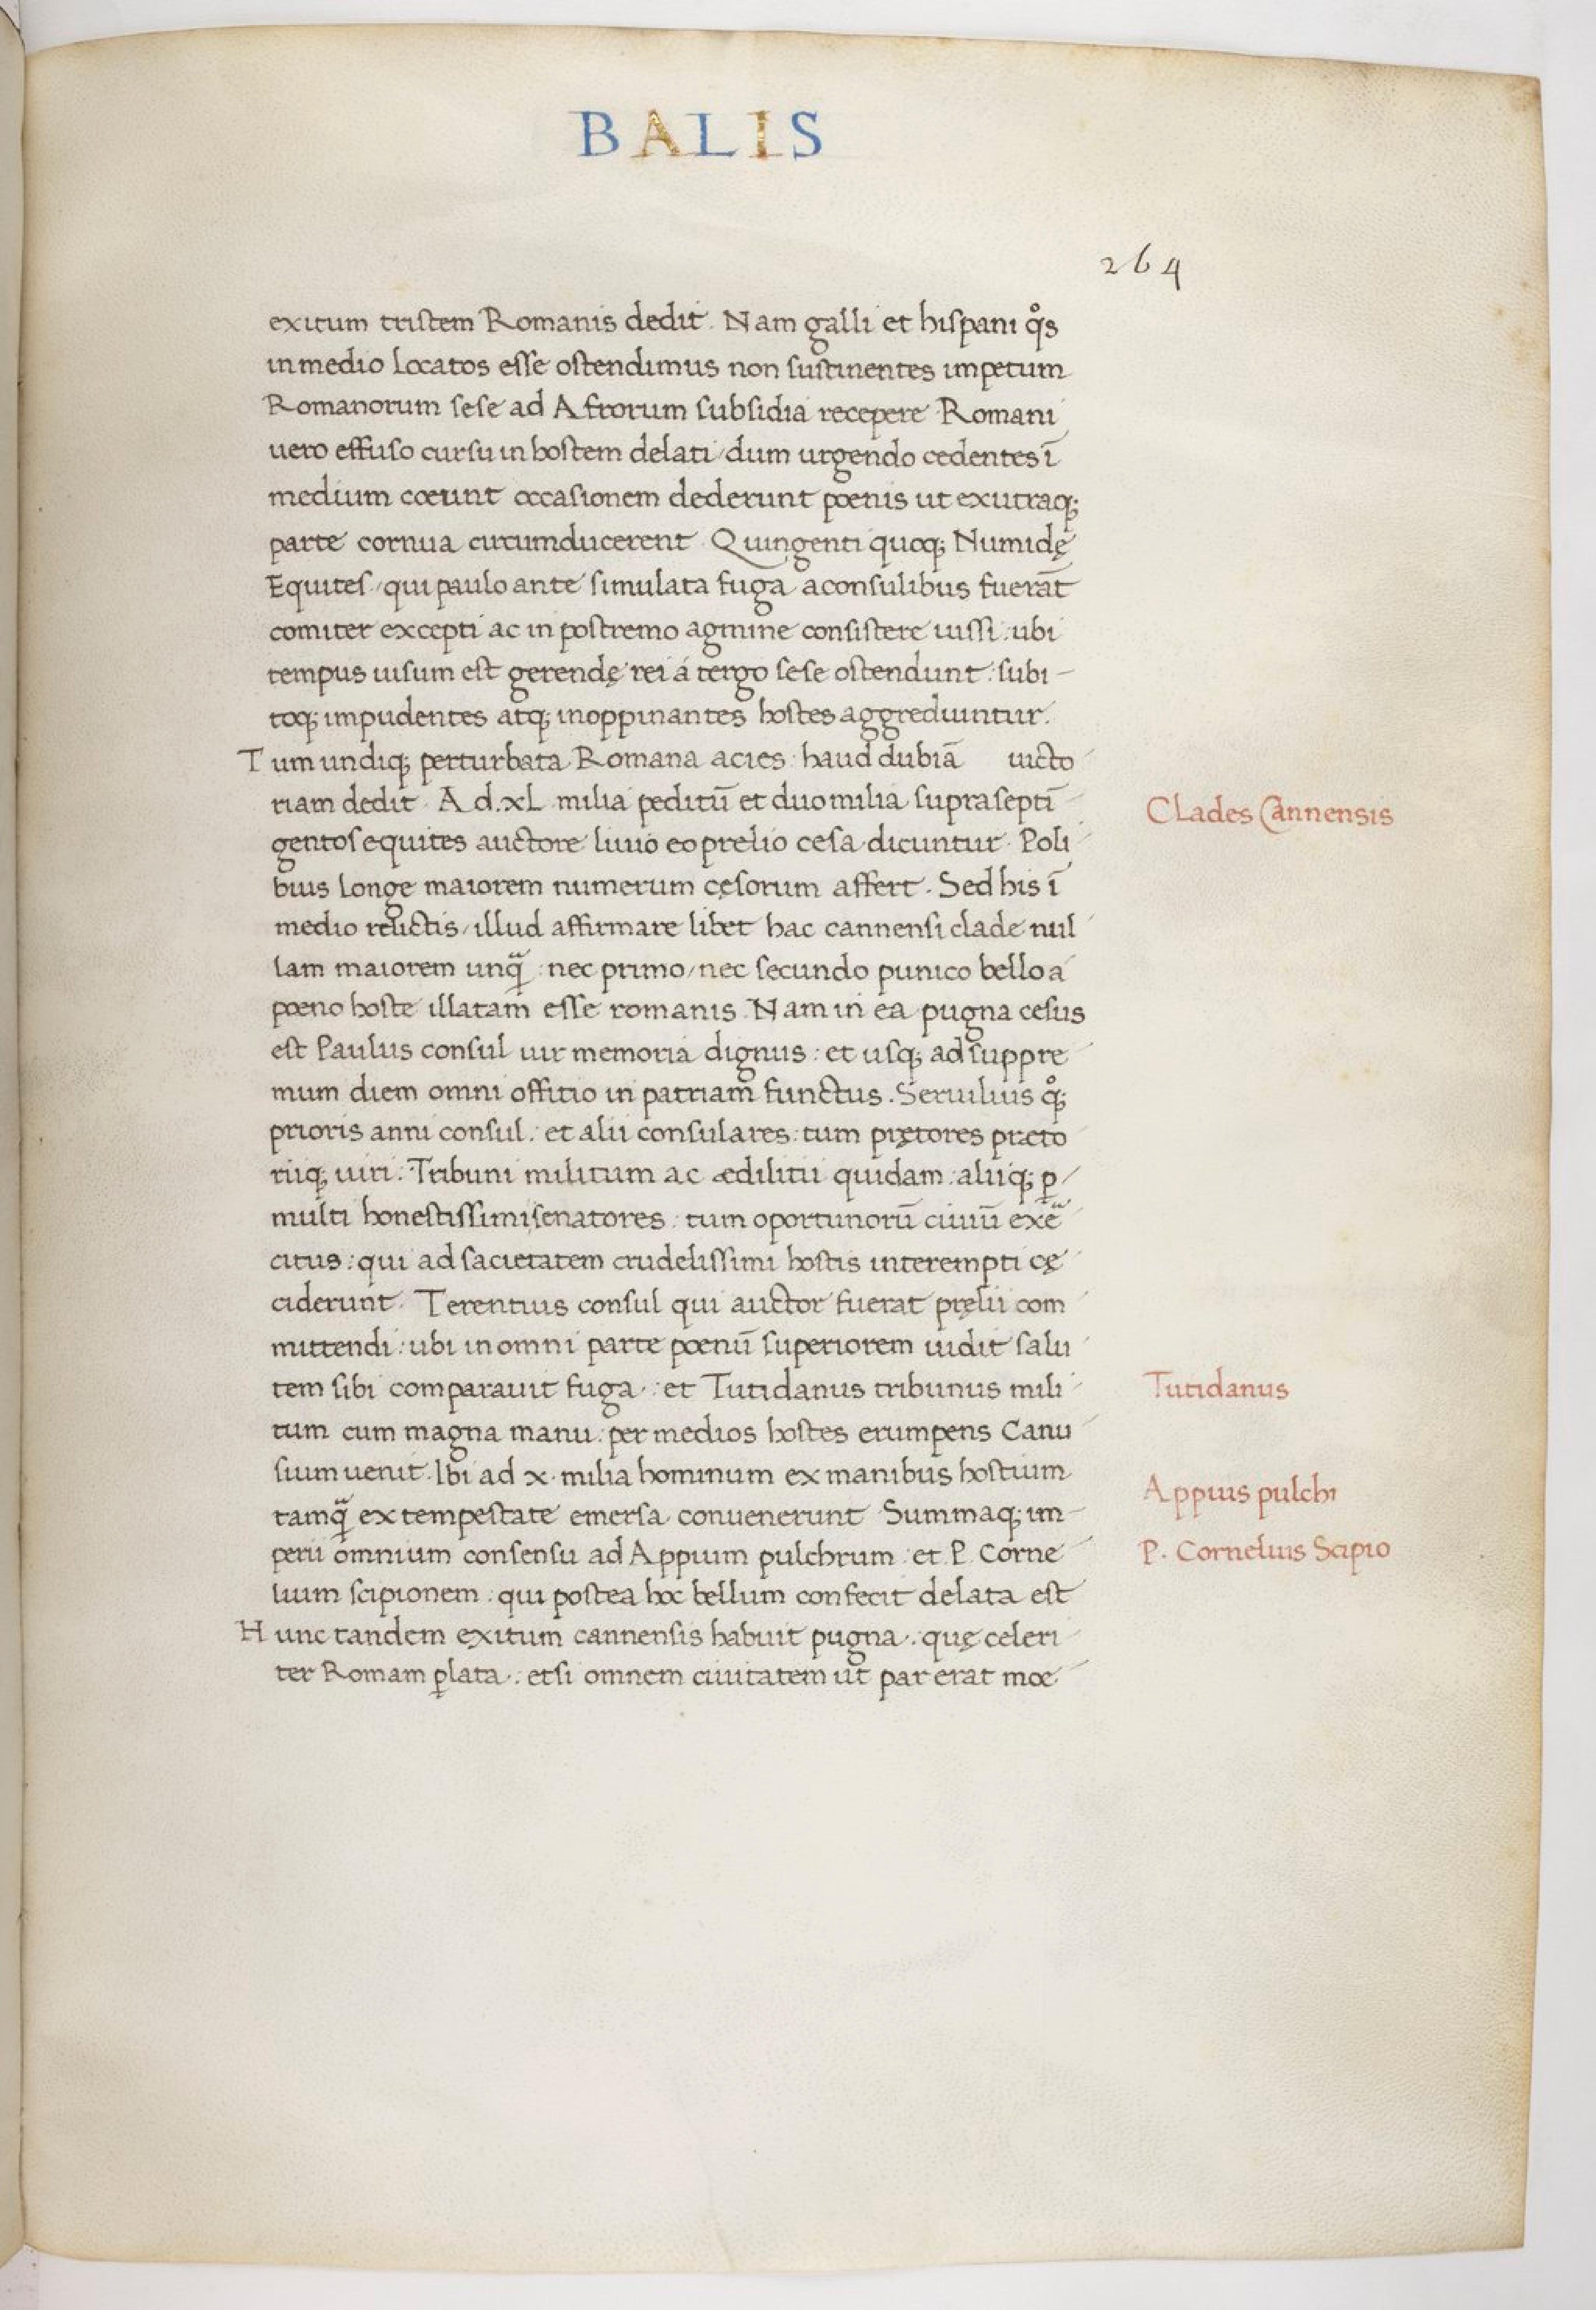 BALIS
264
exitum tristem Romanis dedit. Nam galli et hispani qͦs
in medio locatos esse ostendimus non sustinentes impetum
Romanorum sese ad Afrorum subsidia recepere Romani
uero effuso cursu in hostem delati / dum urgendo cedentes ī
medium coeunt occasionem dederunt poenis ut ex utraq;
parte cornua circumducerent Quingenti quoq; Numidę
Equites / qui paulo ante simulata fuga a consulibus fuerāt
comiter excepti ac in postremo agmine consistere iussi : ubi
tempus uisum est gerendę rei á tergo sese ostendunt : subi-
toq; impudentes atq; inoppinantes hostes aggrediuntur.
Tum undiq; perturbata Romana acies : haud dubiā uicto
riam dedit. Ad .xL. milia peditū et duo milia supra septī
gentos equites auctore liuio eo prelio cesa dicuntur. Poli
bius longe maiorem numerum cęsorum affert. Sed his ī
medio relictis / illud affirmare libet hac cannensi clade nul
lam maiorem unqᷓ : nec primo / nec secundo punico bello a
poeno hoste illatam esse romanis. Nam in ea pugna cesus
est Paulus consul uir memoria dignus : et usq; ad suppre
mum diem omni offitio in patriam functus. Seruilius qͦ;
prioris anni consul : et alii consulares : tum prętores præto
riiq; uiri : Tribuni militum ac ædilitii quidam : aliiq; ꝑ
multi honestissimi senatores : tum oportunorū ciuiū exēᷓ
citus : qui ad sacietatem crudelissimi hostis interempti cę
ciderunt. Terentius consul qui auctor fuerat pręlii com
mittendi : ubi in omni parte poenū superiorem uidit salu
tem sibi comparauit fuga : et Tutidanus tribunus mili
tum cum magna manu : per medios hostes erumpens Canu
sium uenit. Ibi ad x. milia hominum ex manibus hostium
tamqᷓ ex tempestate emersa conuenerunt Summaq; im-
perii omnium consensu ad Appium pulchrum : et P. Corne
lium scipionem : qui postea hoc bellum confecit delata est
Hunc tandem exitum cannensis habuit pugna : quę celeri
ter Romam ꝑlata : etsi omnem ciuitatem ut par erat moe
Clades Cannensis
Tutidanus
Appius pulchr
P. Cornelius Scipio